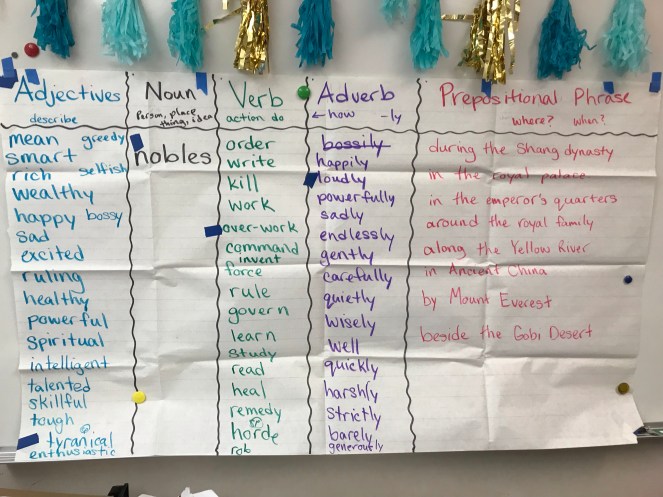 Adjectives
describe
mean greedy
smart
rich selfish
wealthy
happy bossy
sad
excited
ruling
healthy
powerful
Spiritual
intelligent
talented
skillful
tough
tyranical
enthusiastic
Noun
Person, place
thing, idea
nobles
Verb
action do
order
write
kill
work
over-work
command
invent
force
rule
govern
learn
study
read
heal
remedy
horde
rob
Adverb
← how -ly
bossily
happily
loudly
powerfully
sadly
endlessly
gently
carefully
quietly
wisely
well
quickly
harshly
strictly
barely
generously
Prepositional Phrase
where? when?
during the Shang dynasty
in the royal palace
in the emperor's quarters
around the royal family
along the Yellow River
in Ancient China
by Mount Everest
beside the Gobi Desert